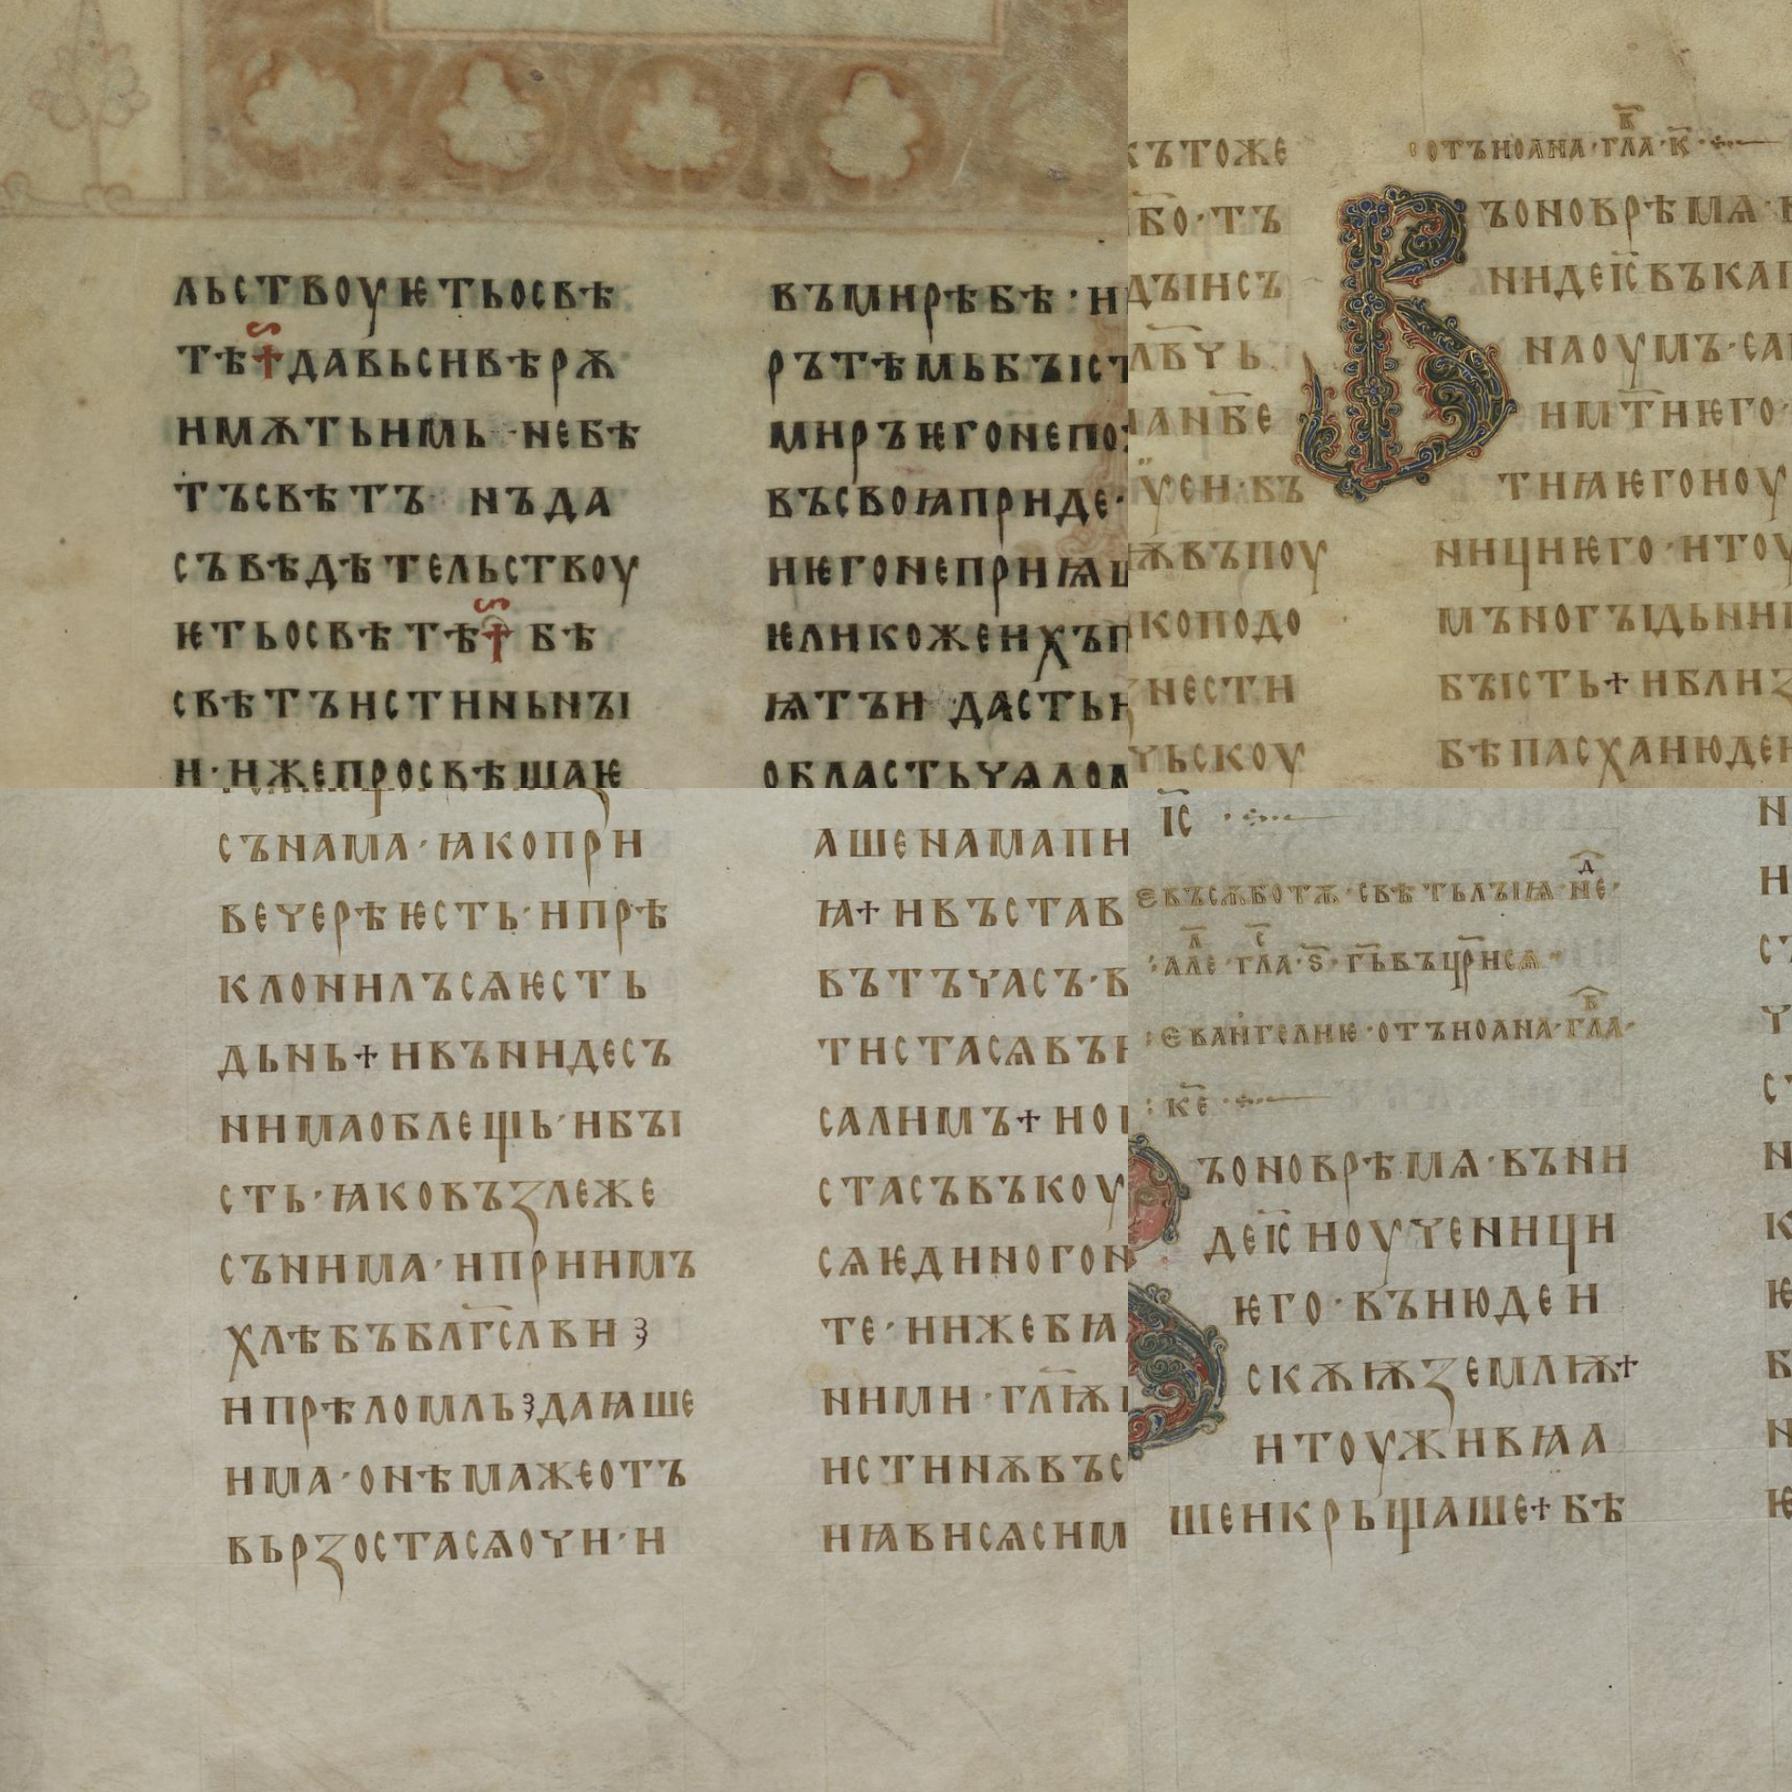 льствоуѥтьосвѣ
тѣ†давьсивѣрѫ
имѫтьимь·небѣ
тъсвѣтъ нъда
съвѣдѣтельствоу
ѥтьосвѣтѣ†бѣ
свѣтъистиньнꙑ
и·ижепросвѣщаѥ
въмирѣбѣ·и
рътѣмьбꙑст
миръѥгонепо
въсвоꙗприде·
иѥгонеприꙗ
ѥликожеихъп
ѩтъи дастьи
областьчѧдом
кътоже
б҃о·тъ
дꙑисъ
лвчь
аниб҃е
ѫвъпоу
коподо
нести
чьскоу
отъиоана·гла·к҃·
ъоноврѣмѧ·в
ниде іс҃ въкап
наоумъ·са
имт҃иѥго·
тиꙗѥгоиоу
ницѥго·итоу
мъногꙑдьни
бꙑсть†иблиꙁ
бѣпасхаиюдеи
сънама·ꙗкопри
вечерѣѥсть·ипрѣ
клонилъсѧѥсть
дьнь†ивънидесъ
нимаоблещь·ибꙑ
сть·ꙗковъꙁлеже
съннма·ипріимъ
хлѣбъблг҃слвиꙁ
ипрѣломль даꙗше
има·онѣмажеотъ
вьрꙁостасѧочи·и
ашенамапи
ꙗ†ивъстав
вътъчасъ·в
тистасѧвъі
салимъ†иоб
стасъвъкоу
сѧѥдиногои
те·иижебꙗ
ними·гл҃ѭ
истинѫвъс
иꙗвисѧсим
іс҃
евъсѫботѫ·свѣтьлꙑѩ·не·
але·гла·ѕ·г҃ьвъцр҃исѧ
еванг҃елиѥ·отъиоана·гла·
к҃е
ъоноврѣмѧ·въни
де іс҃ иоученици
ѥго·въиюдеи
скѫѭꙁемлѭ†
итоуживꙗа
шеикрьщаше†бѣ